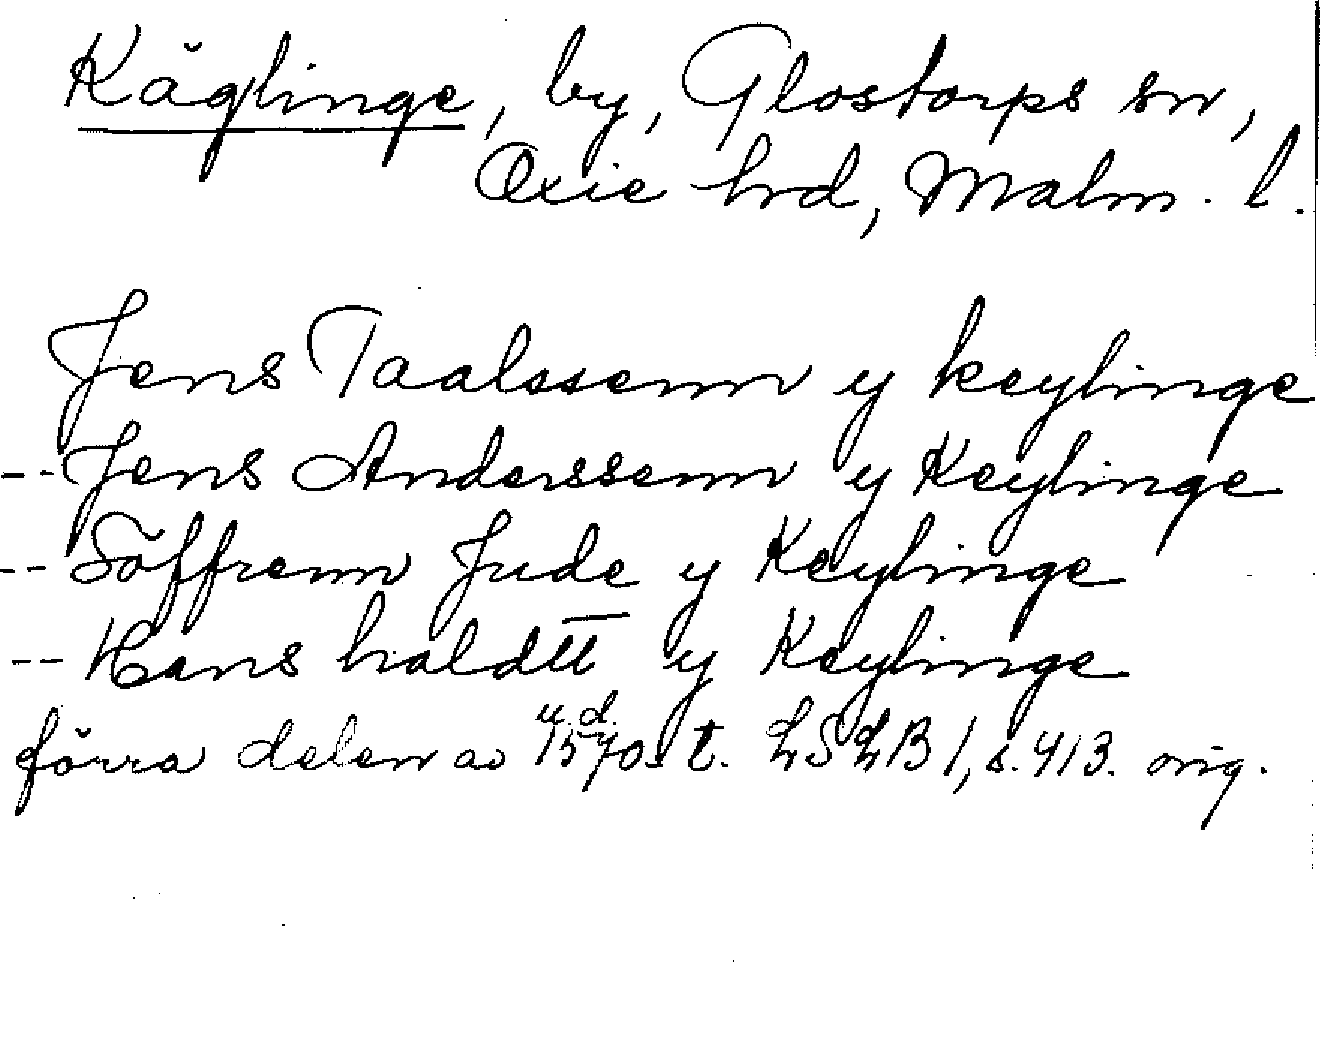 Käglinge, by, Glostorps sn,
Oxie hrd, Malm. l.
Jens Taalssenn y keylinge
-- Jens Anderssenn y Keylinge
-- Söffrenn Jude y Keylinge
-- Hans holdtt y Keylinge
u. d.
förra delen av 1570. t. LSLB 1, s. 413. orig.